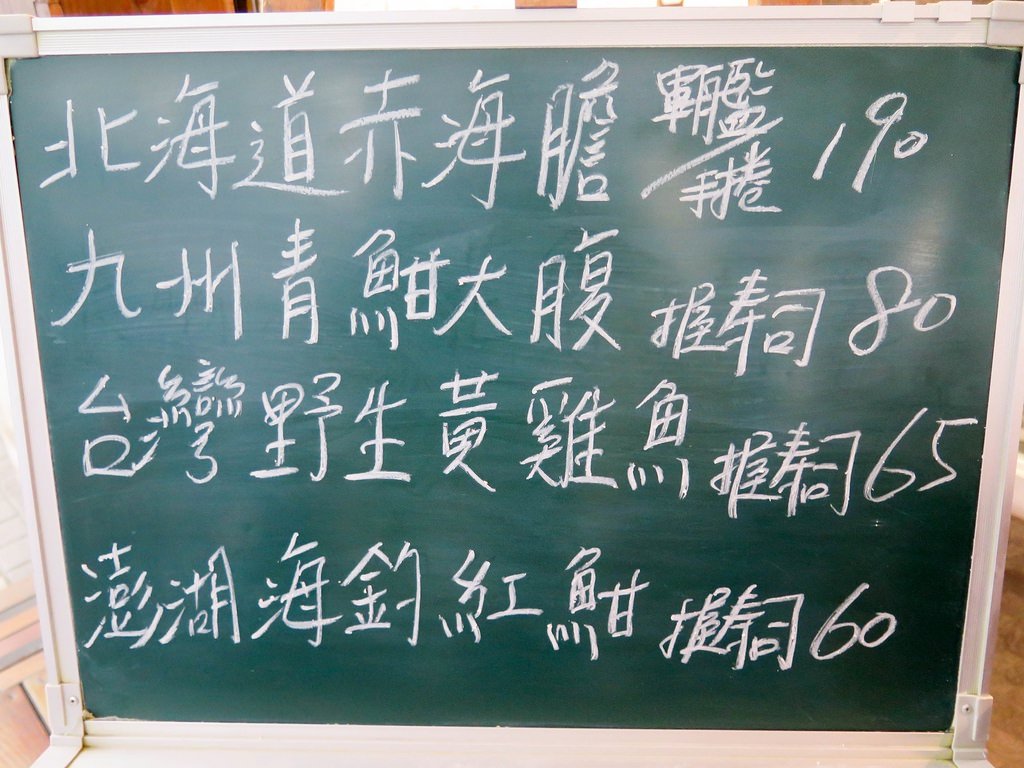 北海道赤海膽 軍艦/手捲 190
九州青魽大腹 握寿司 80
台灣野生黃雞魚 握寿司 65
澎湖海釣紅魽 握寿司 60